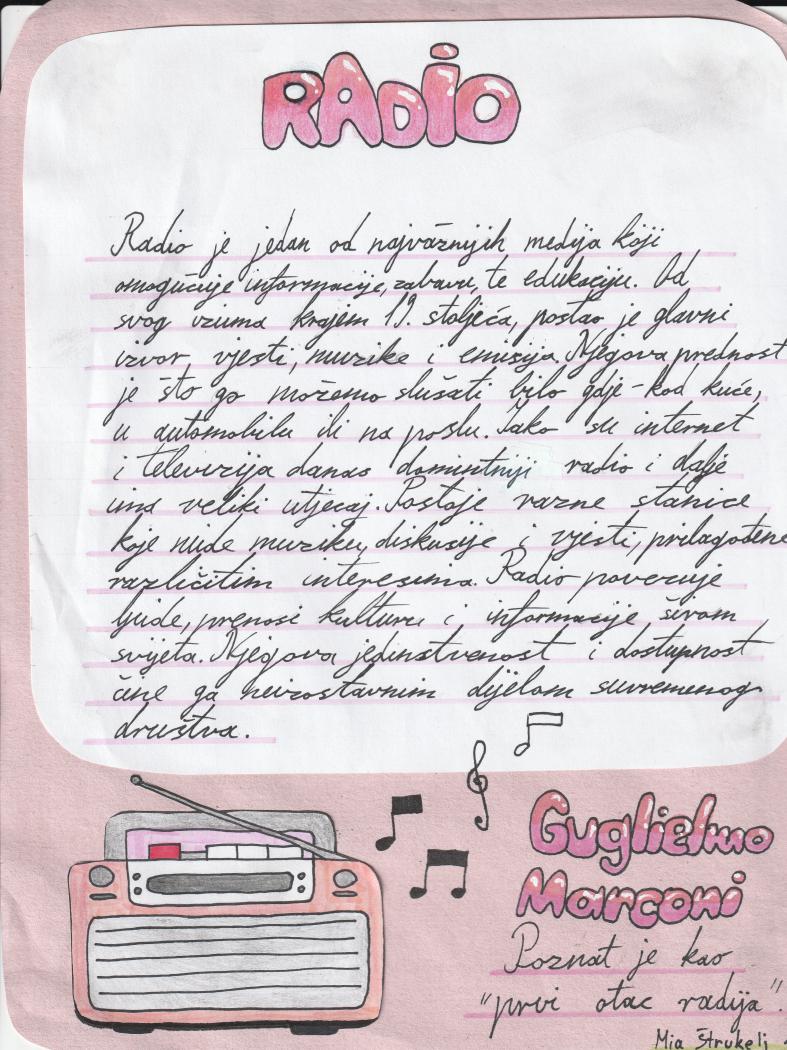 RADiO
Radio je jedan od najvažnijih medija koji
omogućuje informacije, zabavu, te edukaciju. Od
svog izuma krajem 19. stoljeća, postao je glavni
izvor vjesti, muzike i emisija. Njegova prednost
je što ga možemo slušati bilo gdje - kod kuće,
u automobilu ili na poslu. Iako su internet
i televizija danas domintniji radio i dalje
ima veliki utjecaj. Postoje razne stanice
koje nude muziku, diskusije i vjesti, prilagođene
različitim interesima. Radio povezuje
ljude, prenosi kulturu i informacije širom
svijeta. Njegova jedinstvenost i dostupnost
čine ga neizostavnim dijelom suvremenog
društva.
Guglielmo
Marconi
Poznat je kao
"prvi otac radija".
Mia Štrukelj